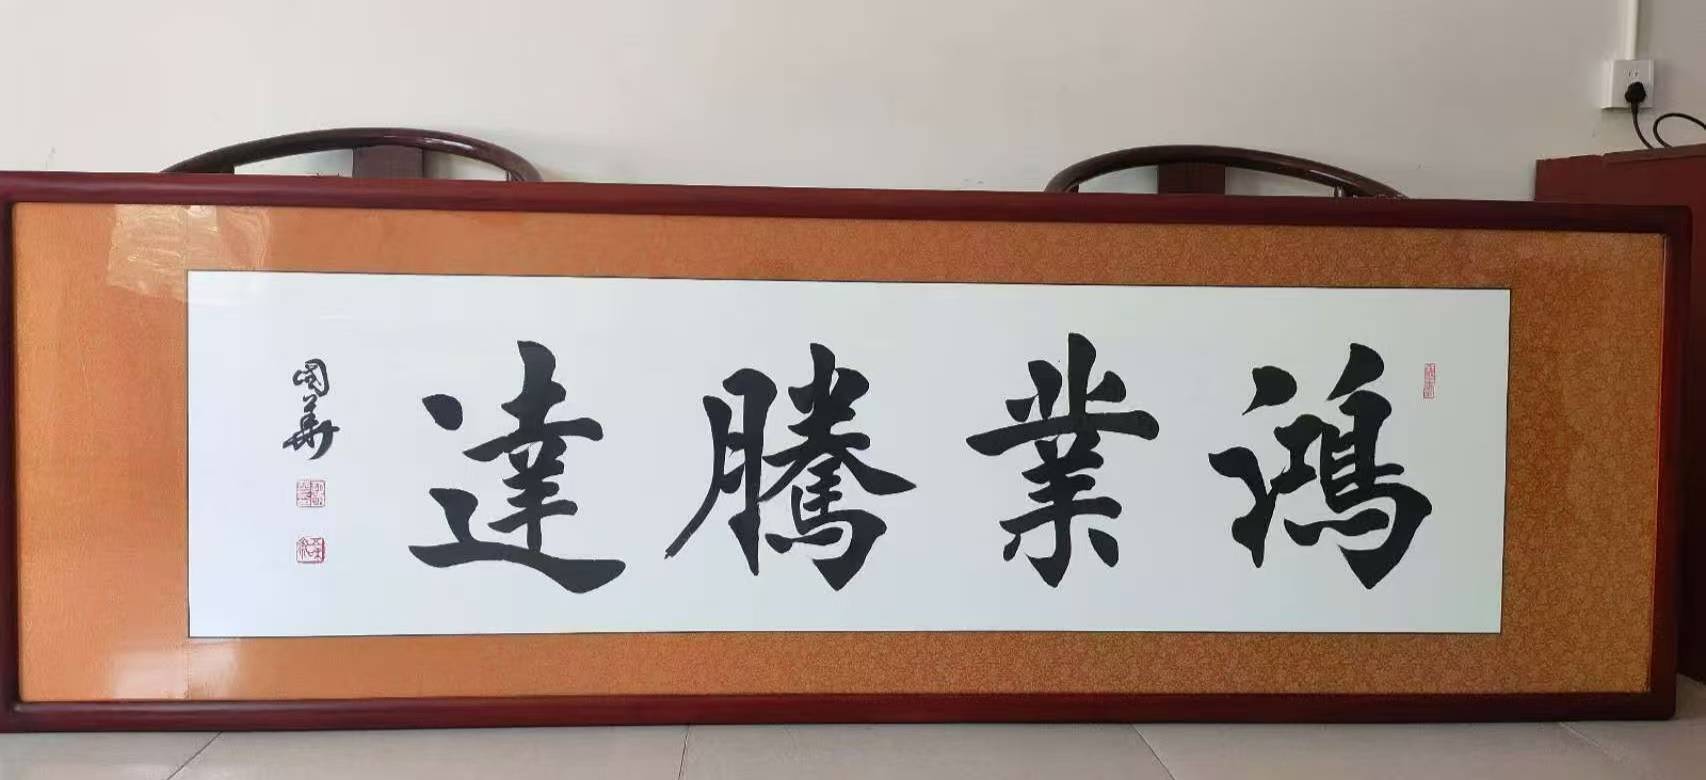 鴻業騰達
國華